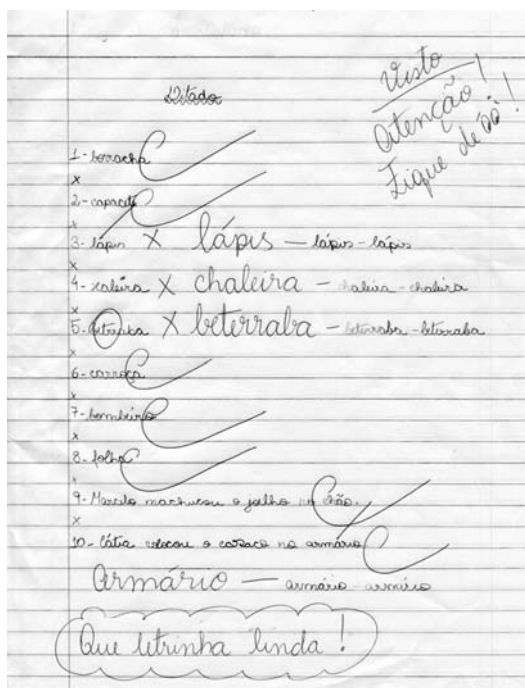 Ditado
Visto
Atenção!
Fique de óó!
1- borracha
x
2- capacete
x
3- lápis X lápis — lápis - lápis
x
4- xaleira X chaleira — chaleira - chaleira
x
5- X beterraba — beterraba - beterraba
x
6- carroça
x
7- bombeiro
x
8- folha
9- Marcelo machucou o joelho no chão.
x
10- Cátia colocou o casaco no armário
Armário — armário - armário
Que letrinha linda!